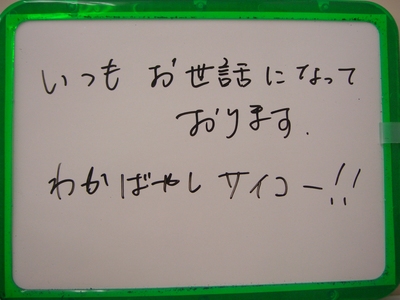 いつも お世話になって
おります.
わかばやし サイコー!!